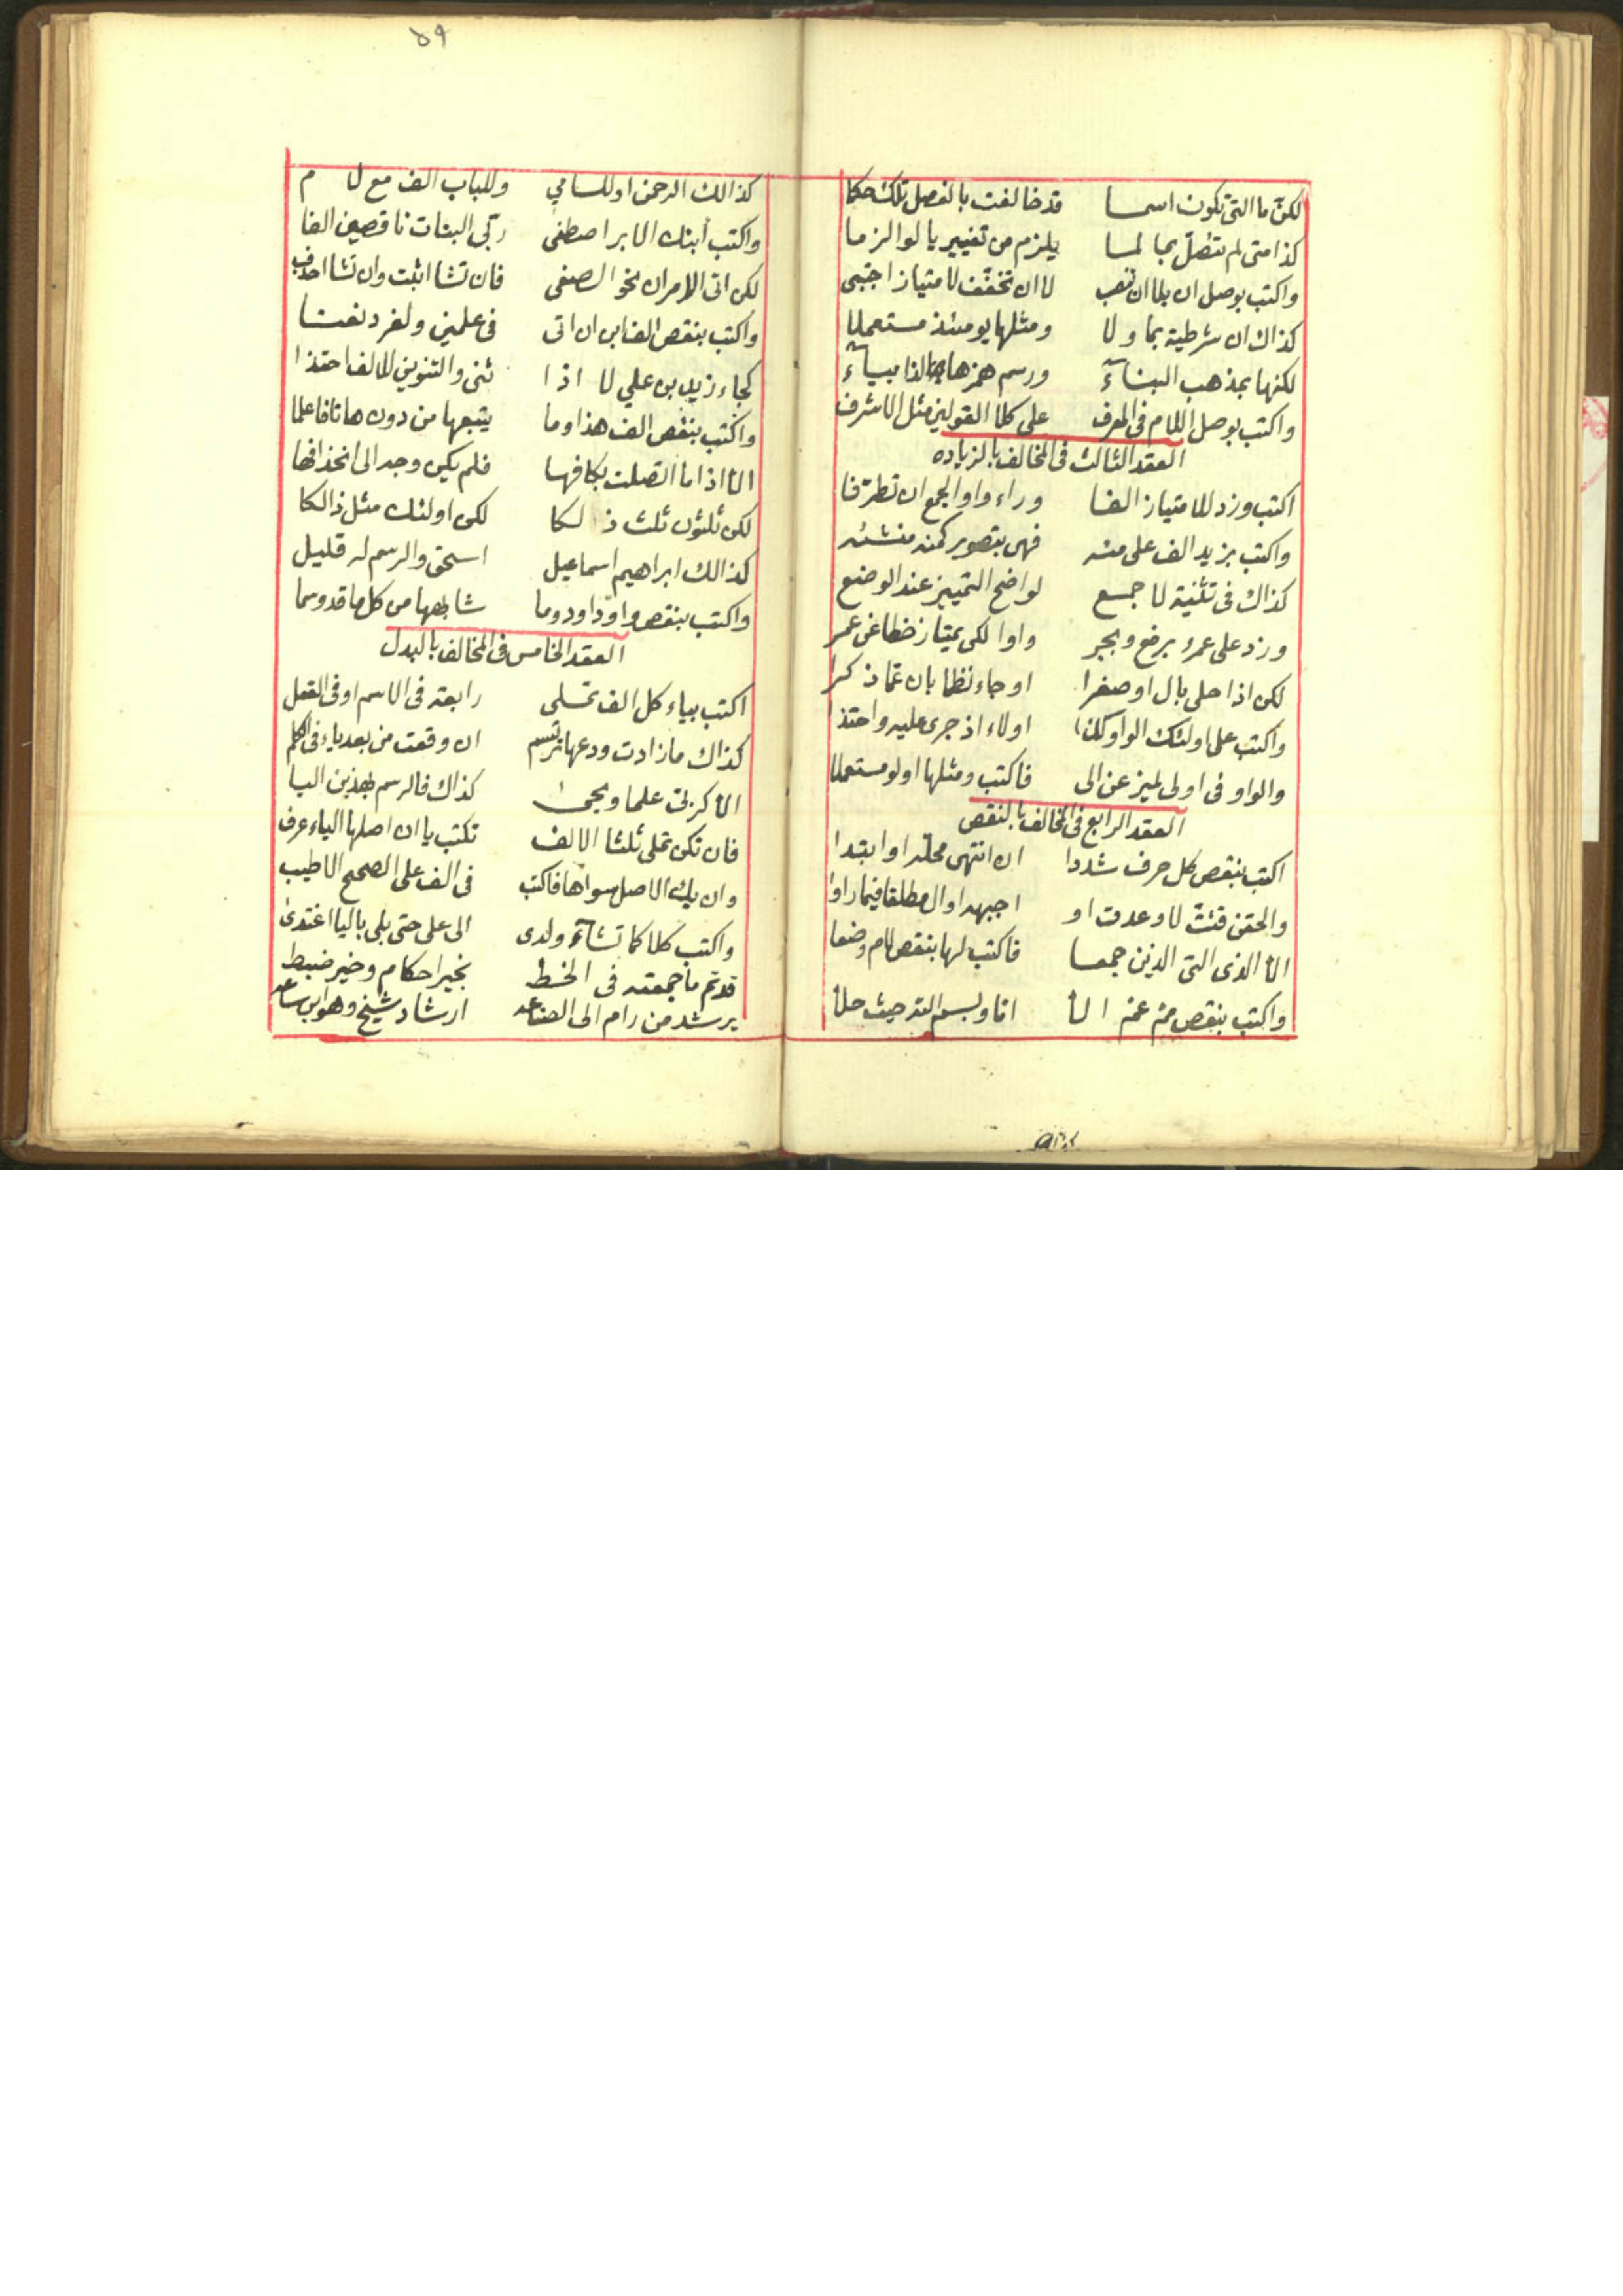 لكن ما التى تكون اسما قد خالفت بالفصل تلك حكما
كذا متى لم تتصل بما لما يلزم من تغيير يا لو الزما
واكتب بوصل ان بلا ان تنصب لا ان تخفف لامتياز اجتبى
كذاك ان شرطية بما ولا ومثلها يومئذ مستعملا
لكنها بمذهب البناء ورسم همزها لذا بياء
واكتب بوصل اللام فى المعرف على كلا القولين مثل الاشرف
العقد الثالث فى المخالف بالزياده
اكتب وزد للامتياز الفا وراء واو الجمع ان تطرفا
واكتب بزيد الف على مئه فهى بتصوير كمنه منشئه
كذاك فى تثنية لا جمع لواضح التمييز عند الوضع
وزد على عمرو برفع وبجر واوا لكى يمتاز خطا عن عمر
لكن اذا حلى بال او صغرا او جاء نظما بان عما ذكرا
واكتب على اولئك الواو كذا اولاء اذ جرى عليه واحتذا
والواو فى اولى لميز عن الى فاكتب ومثلها اولو مستعملا
العقد الرابع فى المخالف بالنقص
اكتب بنقص كل حرف شددا ان انتهى محله او ابتدا
والحقن قنت لا وعدت او اجبهه او ال مطلقا فيما راوا
الا الذى التى الذين جمعا فاكتب لها بنقص لام وضعا
واكتب بنقص مم عم الا انا وبسم الله حيث حلا
٥٩
كذالك الرحمن او للسامي وللباب الف مع لام
واكتب أبنك الابر اصطفى ربى البنات ناقصين الفا
لكن اتى الامران نحو الصفى فان تشا اثبت وان تشا احذف
واكتب بنقص الف ابن ان اتى فى علمين ولفرد نعتا
كجاء زيد بن علي لا اذا ثنى والتنوين للالف احتذا
واكتب بنقص الف هذا وما يتبعها من دون هاتا فاعلما
الا اذا ما اتصلت بكافها فلم يكن وجه الى انحذافها
لكن ثلثون ثلث ذلكا لكن اولئك مثل ذالكا
كذالك ابراهيم اسماعيل اسحق والرسم له قليل
واكتب بنقص واو داود وما شابهها من كل ما قد وسما
العقد الخامس فى المخالف بالبدل
اكتب بياء كل الف تملى رابعة فى الاسم او فى الفعل
كذاك ما زادت ودعها ترتسم ان وقعت من بعد ياء فى الكلم
الا كربى علما ويحيى كذاك فالرسم بهذين اليا
فان تكن تملى ثلثا الالف تكتب يا ان اصلها الياء عرف
وان يك الاصل سواها فاكتب فى الف على الصحيح الاطيب
واكتب كلا كما تشاء ولدى الى على حتى بلى باليا اغتدى
قد تم ما جمعته فى الخط بخير احكام وخير ضبط
يرشد من رام الى الصناعه ارشاد شيخ وهو ابن ساعه